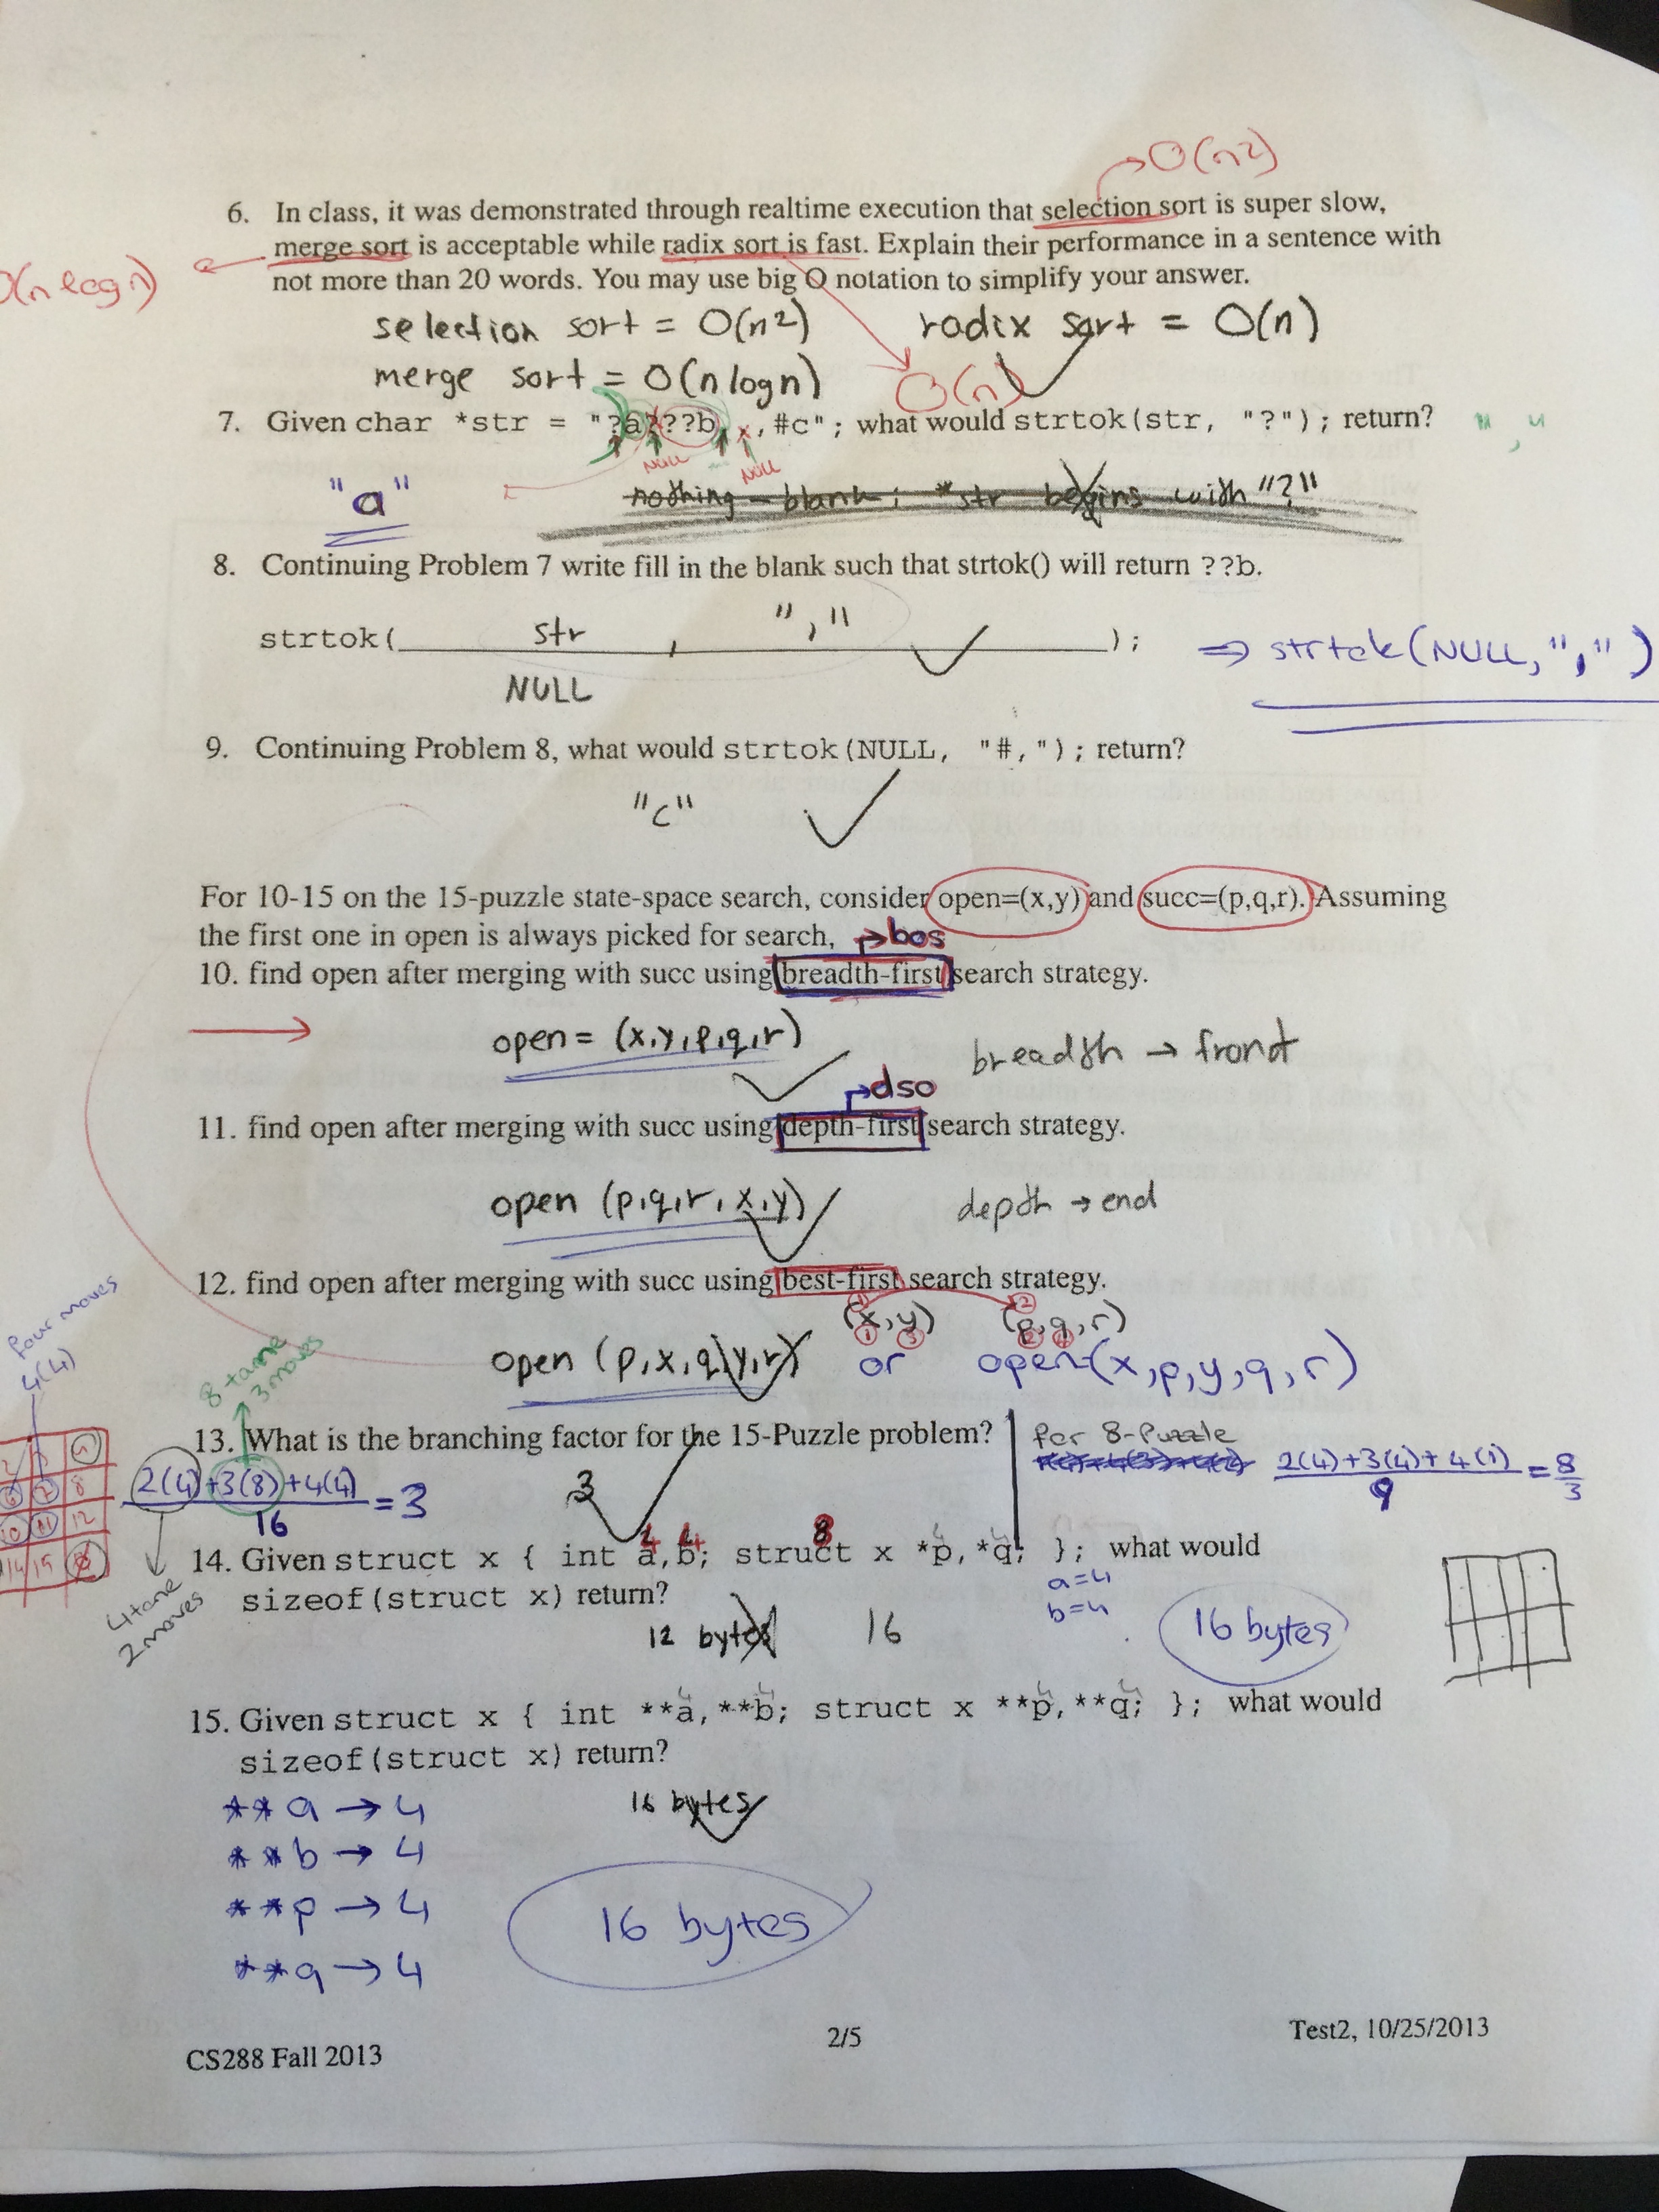 O(n2)
6. In class, it was demonstrated through realtime execution that selection sort is super slow,
merge sort is acceptable while radix sort is fast. Explain their performance in a sentence with
O(n logn)
not more than 20 words. You may use big O notation to simplify your answer.
selection sort = O(n2) radix sort = O(n)
merge sort = O(n logn) O(n)
7. Given char *str = "?a???b,,#c"; what would strtok(str, "?"); return? " , "
NULL NULL
"a" nothing - blank; *str begins with "?"
8. Continuing Problem 7 write fill in the blank such that strtok() will return ??b.
strtok( str , "," ); ⇒ strtok(NULL, ",")
NULL
9. Continuing Problem 8, what would strtok(NULL, "#,"); return?
"c"
For 10-15 on the 15-puzzle state-space search, consider open=(x,y) and succ=(p,q,r). Assuming
the first one in open is always picked for search, → bos
10. find open after merging with succ using breadth-first search strategy.
open = (x,y,p,q,r) breadth → front
→ dso
11. find open after merging with succ using depth-first search strategy.
open (p,q,r,x,y) depth → end
12. find open after merging with succ using best-first search strategy.
(x,y) (p,q,r)
open (p,x,q,y,r) or open=(x,p,y,q,r)
four moves
4(4)
8 tane
3 moves
13. What is the branching factor for the 15-Puzzle problem? for 8-Puzzle
2(4)+3(8)+4(4) / 16 = 3 3 2(4)+3(4)+4(1) / 9 = 8/3
8
12
14 15
4 tane
2 moves
4 4 8 4 4
14. Given struct x { int a,b; struct x *p,*q; }; what would
sizeof(struct x) return? a=4
b=4
12 bytes 16 16 bytes
4 4 4 4
15. Given struct x { int **a,**b; struct x **p,**q; }; what would
sizeof(struct x) return?
**a → 4 16 bytes
**b → 4
**p → 4 16 bytes
**q → 4
CS288 Fall 2013 2/5 Test2, 10/25/2013